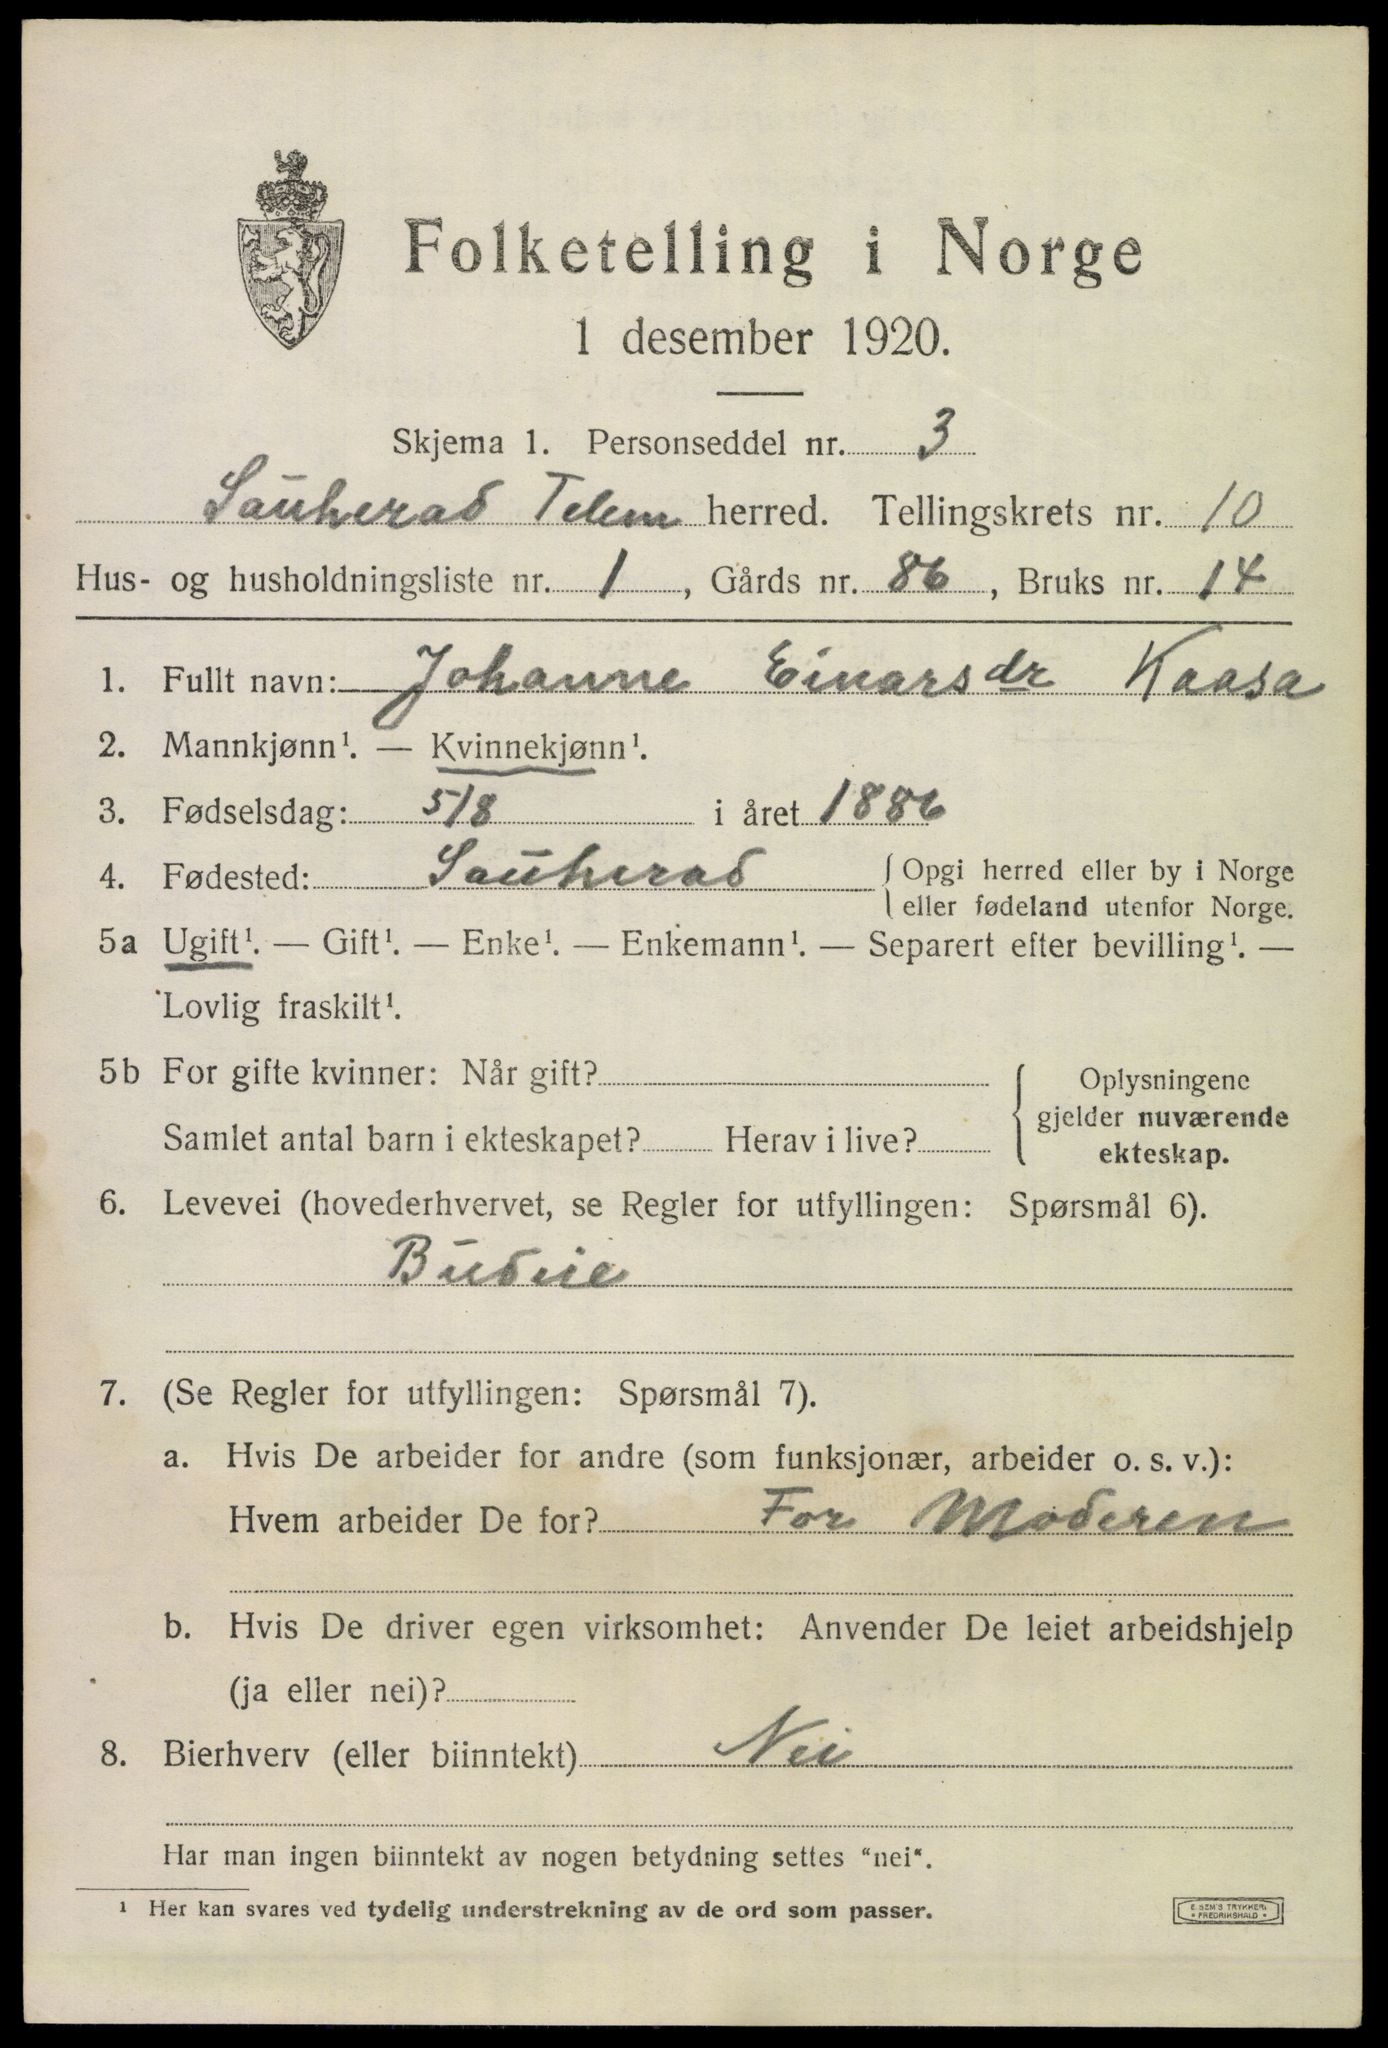 Folketelling i Norge
1 desember 1920.
Skjema 1. Personseddel nr. 3
Sauherad Telem herred. Tellingskrets nr. 10
Hus- og husholdningsliste nr. 1, Gårds nr. 86, Bruks nr. 14
1. Fullt navn: Johanne Einarsdr Kaasa
2. Mannkjønn¹. — Kvinnekjønn¹.
3. Fødselsdag: 5/8 i året 1886
4. Fødested: Sauherad { Opgi herred eller by i Norge
eller fødeland utenfor Norge.
5a Ugift¹. — Gift¹. — Enke¹. — Enkemann¹. — Separert efter bevilling¹. —
Lovlig fraskilt¹.
5b For gifte kvinner: Når gift?
Samlet antal barn i ekteskapet? Herav i live?
{ Oplysningene
gjelder nuværende
ekteskap.
6. Levevei (hovederhvervet, se Regler for utfyllingen: Spørsmål 6).
Budeie
7. (Se Regler for utfyllingen: Spørsmål 7).
a. Hvis De arbeider for andre (som funksjonær, arbeider o. s. v.):
Hvem arbeider De for? For Moderen
b. Hvis De driver egen virksomhet: Anvender De leiet arbeidshjelp
(ja eller nei)?
8. Bierhverv (eller biinntekt) Nei
Har man ingen biinntekt av nogen betydning settes "nei".
¹ Her kan svares ved tydelig understrekning av de ord som passer.
E. SEM'S TRYKKERI
• FREDRIKSHALD •